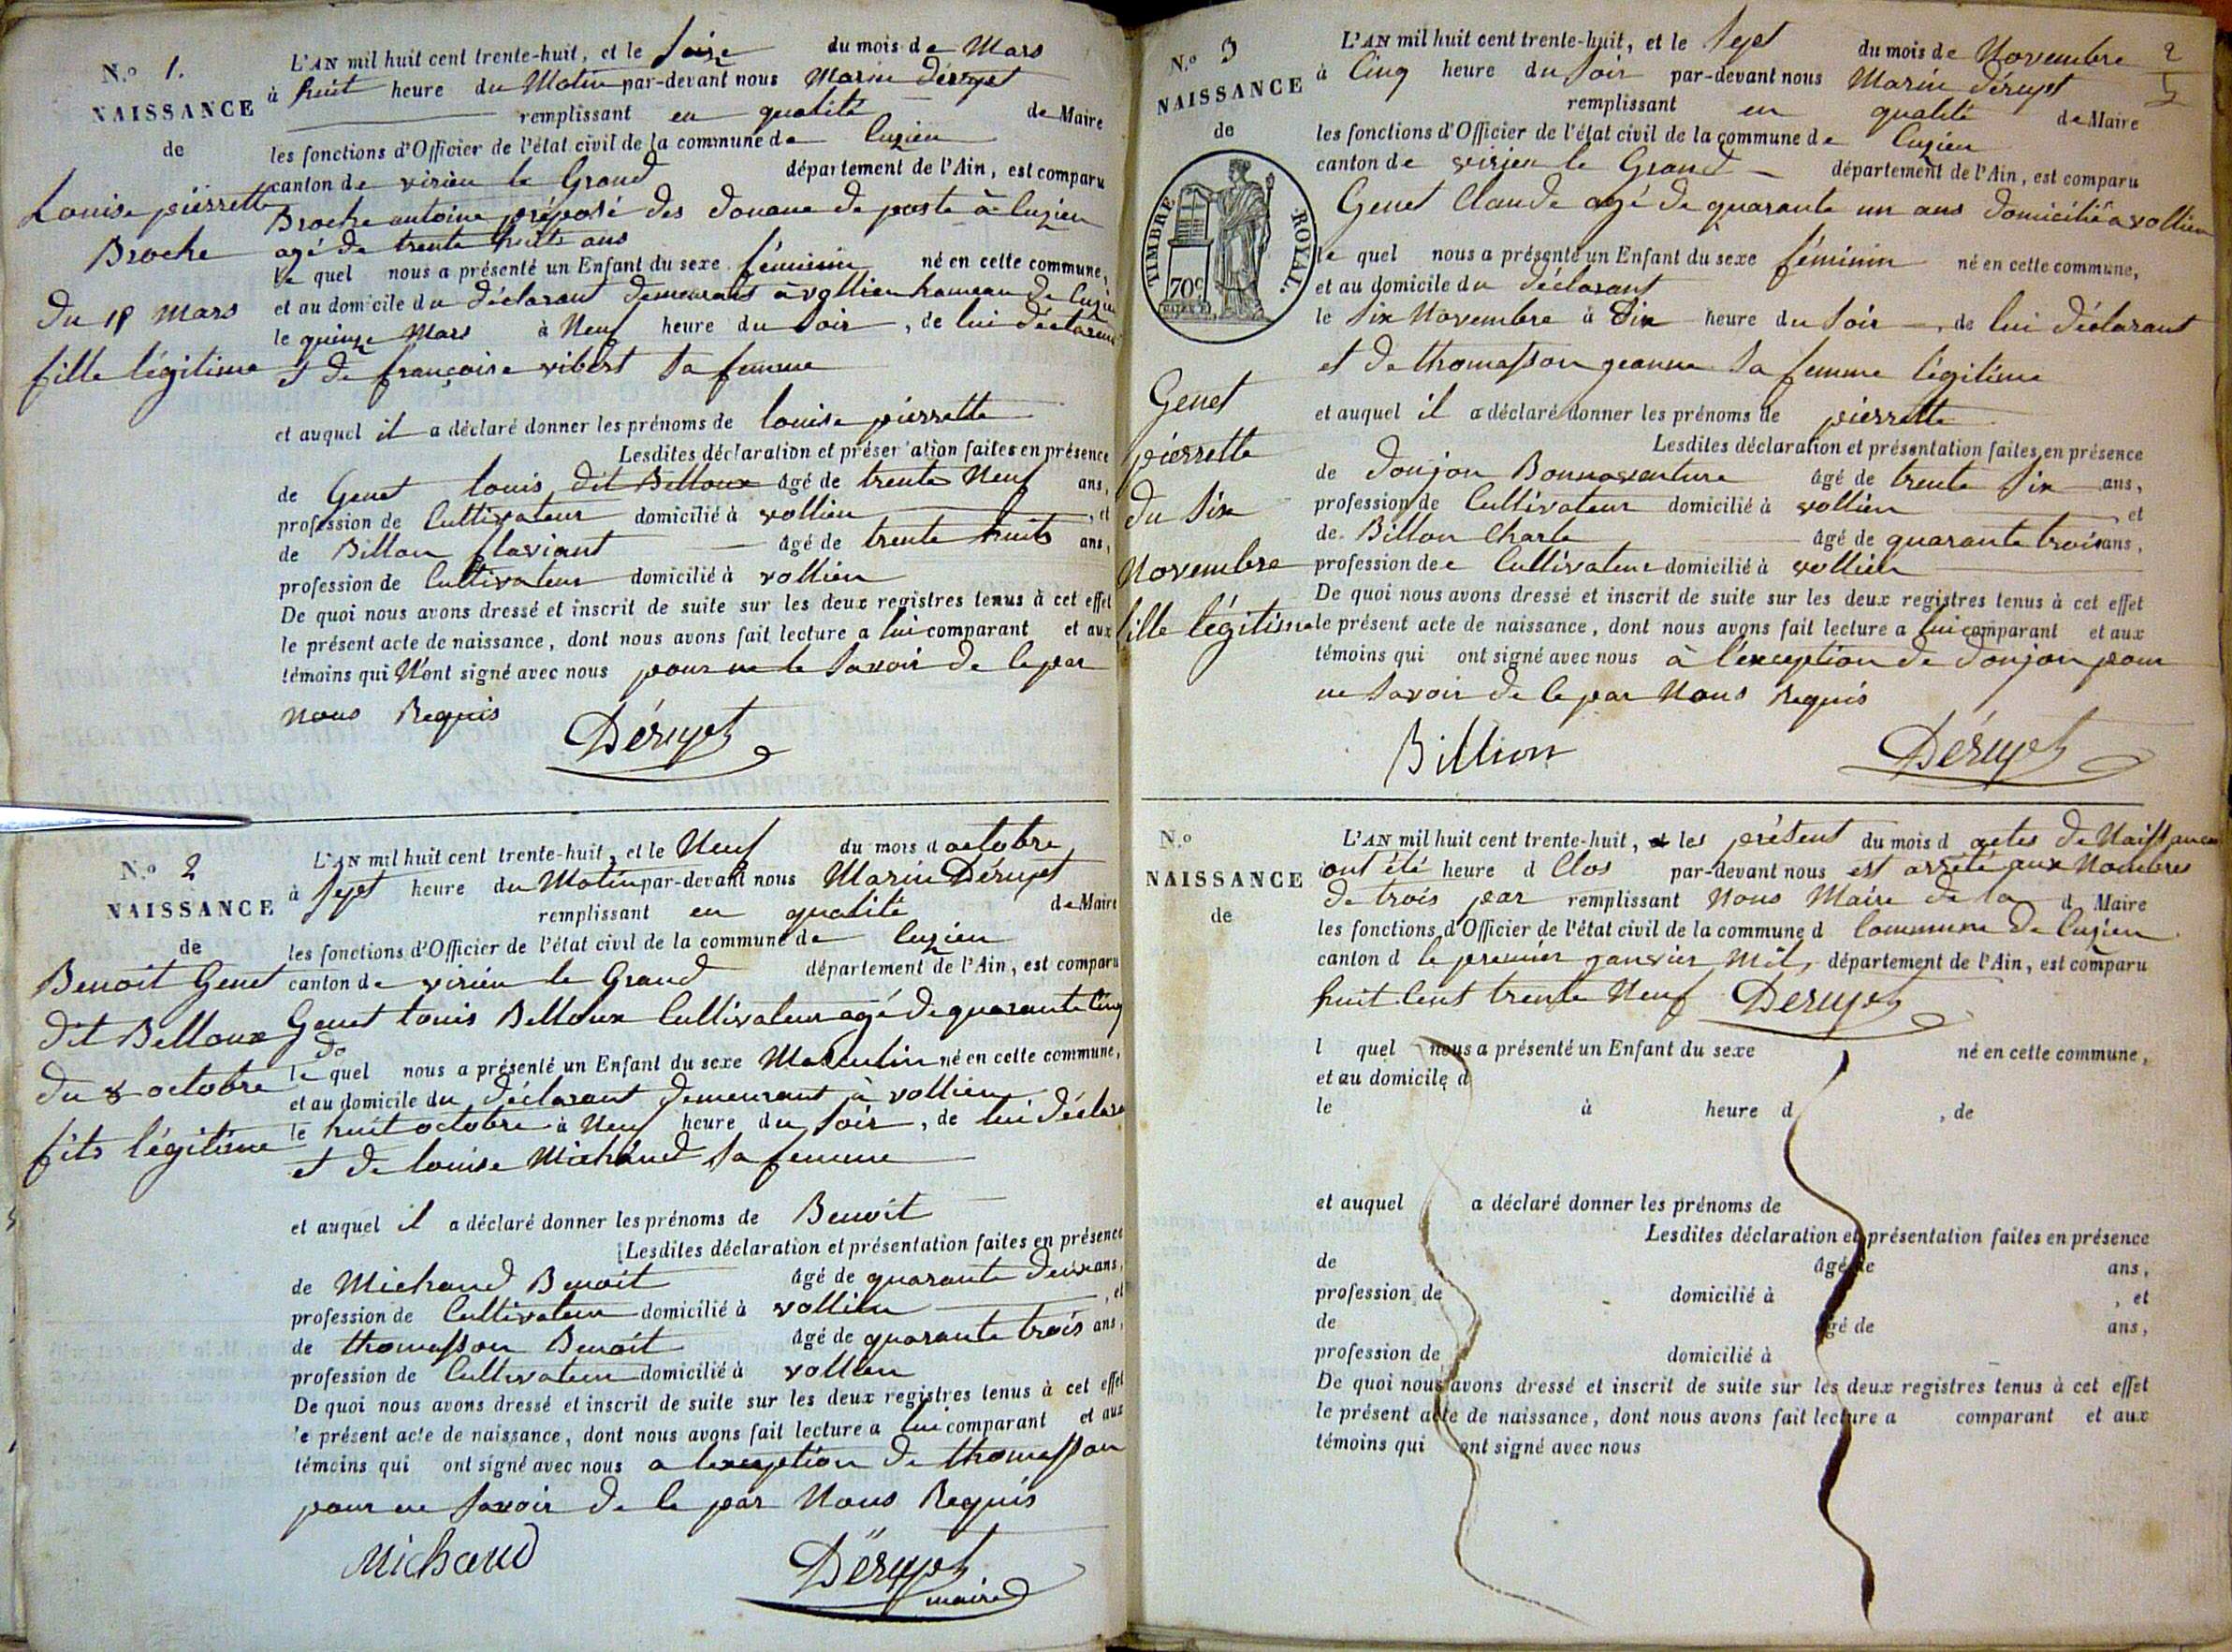 N.º 1.
NAISSANCE
de
Louise pierrette
Broche
du 15 mars
fille légitime
L'AN mil huit cent trente-huit, et le seize du mois de Mars
à huit heure du Matin par-devant nous Marin Dérupt
remplissant en qualité de Maire
les fonctions d'Officier de l'état civil de la commune de Cuzieu
canton de virieu le Grand département de l'Ain, est comparu
Broche antoine préposé des douane de poste à Cuzieu
agé de trente huit ans
le quel nous a présenté un Enfant du sexe féminin né en cette commune,
et au domicile du déclarant demeurant à vollien hameau de Cuzieu
le quinze Mars à Neuf heure du soir, de lui déclarant
et de françoise vibert sa femme
et auquel il a déclaré donner les prénoms de louise pierrette
Lesdites déclaration et présentation faites en présence
de Genet louis dit Belloux âgé de trente Neuf ans,
profession de Cultivateur domicilié à vollien, et
de Billon flaviant âgé de trente huit ans,
profession de Cultivateur domicilié à vollien
De quoi nous avons dressé et inscrit de suite sur les deux registres tenus à cet effet
le présent acte de naissance, dont nous avons fait lecture a lui comparant et aux
témoins qui N'ont signé avec nous pour ne le savoir de le par
nous Requis
Dérupt
N.º 2
NAISSANCE
de
Benoit Genet
dit Belloux
du 8 octobre
fils légitime
L'AN mil huit cent trente-huit, et le Neuf du mois d octobre
à sept heure du Matin par-devant nous Marin Dérupt
remplissant en qualité de Maire
les fonctions d'Officier de l'état civil de la commune de Cuzieu
canton de virieu le Grand département de l'Ain, est comparu
Genet louis Belloux Cultivateur agé de quarante Cinq
le quel nous a présenté un Enfant du sexe Masculin né en cette commune,
et au domicile du déclarant demeurant à vollien
le huit octobre à Neuf heure du soir, de lui déclara
et de louise Michaud sa femme
et auquel il a déclaré donner les prénoms de Benoit
Lesdites déclaration et présentation faites en présence
de Michaud Benoit âgé de quarante deux ans,
profession de Cultivateur domicilié à vollien, et
de thomasson Benoit âgé de quarante trois ans,
profession de Cultivateur domicilié à vollien
De quoi nous avons dressé et inscrit de suite sur les deux registres tenus à cet effet
le présent acte de naissance, dont nous avons fait lecture a lui comparant et aux
témoins qui ont signé avec nous a lexception de thomasson
pour ne savoir de le par Nous Requis
Michaud
Dérupt
maire
2
N.º 3
NAISSANCE
de
TIMBRE ROYAL.
70c
Genet
pierrette
du six
Novembre
fille légitime
L'AN mil huit cent trente-huit, et le sept du mois de Novembre
à Cinq heure du soir par-devant nous Marin dérupt
remplissant en qualité de Maire
les fonctions d'Officier de l'état civil de la commune de Cuzieu
canton de virieu le Grand département de l'Ain, est comparu
Genet Claude agé de quarante un ans domicilié a vollien
le quel nous a présenté un Enfant du sexe féminin né en cette commune,
et au domicile du déclarant
le six Novembre à dix heure du soir, de lui déclarant
et de thomasson jeanne sa femme légitime
et auquel il a déclaré donner les prénoms de pierrette
Lesdites déclaration et présentation faites en présence
de donjon Bonnaventure âgé de trente six ans,
profession de Cultivateur domicilié à vollien, et
de Billon Charle âgé de quarante trois ans,
profession de Cultivateur domicilié à vollien
De quoi nous avons dressé et inscrit de suite sur les deux registres tenus à cet effet
le présent acte de naissance, dont nous avons fait lecture a lui comparant et aux
témoins qui ont signé avec nous à l'exception de donjon pour
ne savoir de le par Nous Requis
Billion
Dérupt
N.º
NAISSANCE
de
L'AN mil huit cent trente-huit, et les présent du mois d actes de Naissance
ont été heure d Clos par-devant nous est arrêté aux Nombres
de trois par remplissant Nous Maire de la d Maire
les fonctions d'Officier de l'état civil de la commune d Commune de Cuzieu
canton d le premier janvier Mil, département de l'Ain, est comparu
huit Cent trente Neuf Dérupt
l quel nous a présenté un Enfant du sexe né en cette commune,
et au domicile d
le à heure d , de
et auquel a déclaré donner les prénoms de
Lesdites déclaration et présentation faites en présence
de âgé de ans,
profession de domicilié à , et
de âgé de ans,
profession de domicilié à
De quoi nous avons dressé et inscrit de suite sur les deux registres tenus à cet effet
le présent acte de naissance, dont nous avons fait lecture a comparant et aux
témoins qui ont signé avec nous